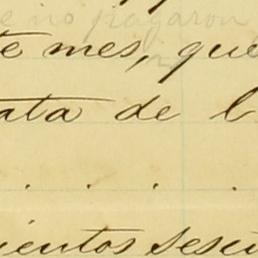 no pagaron
te mes, que
ata de l
. . . .
ientos sesen